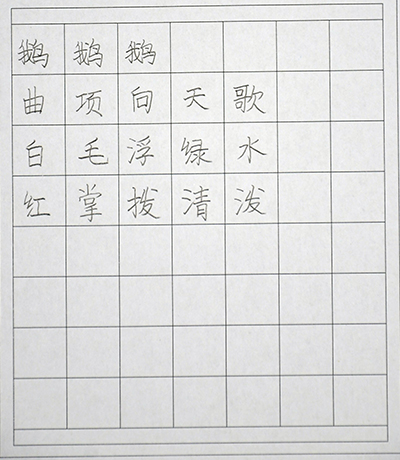 鹅鹅鹅
曲项向天歌
白毛浮绿水
红掌拨清泼